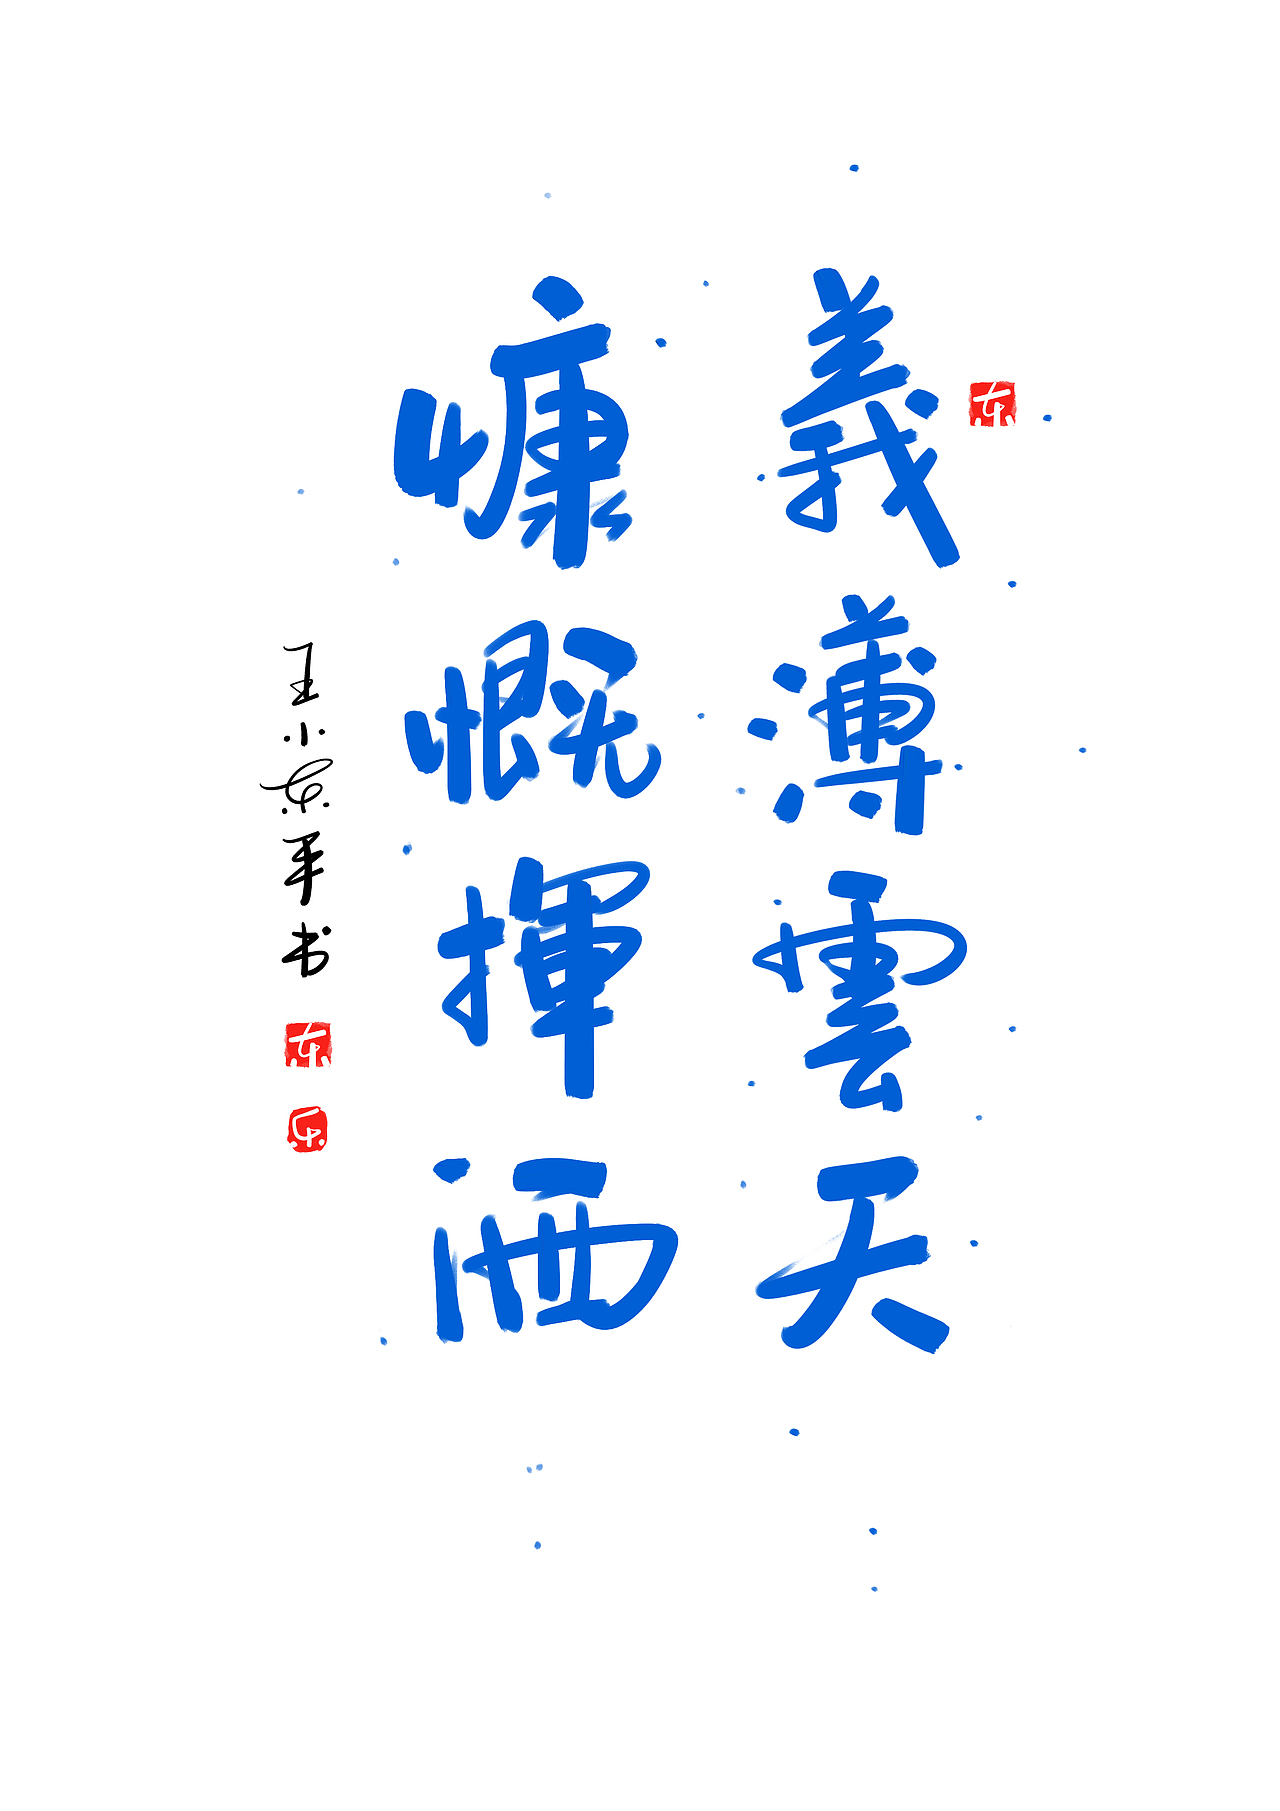 義薄雲天
慷慨揮洒
王小东手书
东
东
乐